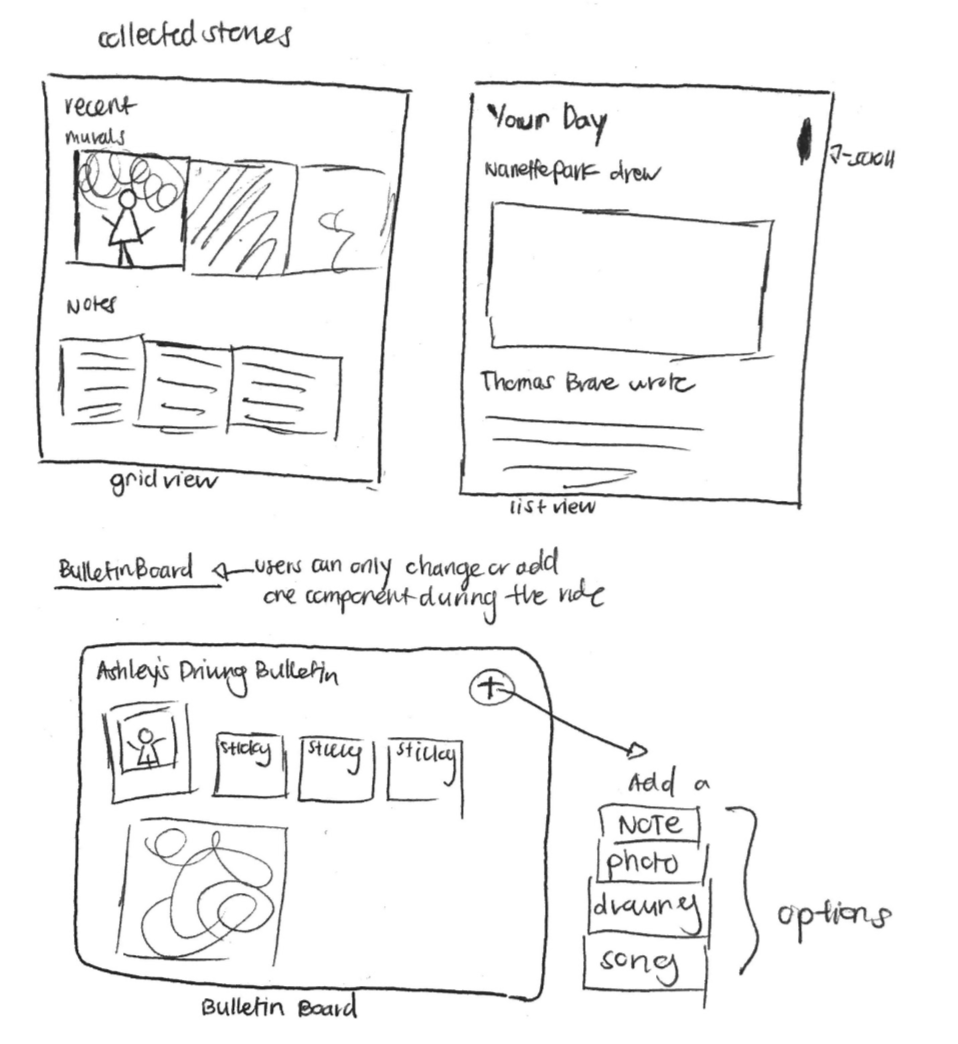 collected stories
recent
murals
Notes
grid view
Your Day
Nanette Park drew
scroll
Thomas Brave wrote
list view
Bulletin Board
users can only change or add
one component during the ride
Ashley's Driving Bulletin
+
sticky
sticky
sticky
Bulletin Board
Add a
NOTE
photo
drawing
song
options